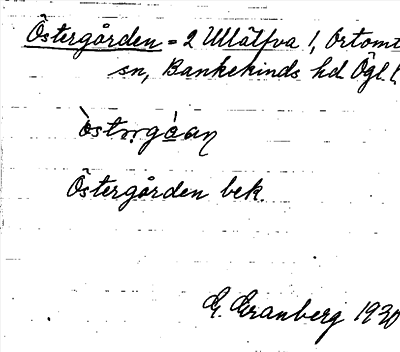 Östergården = 2 Ullälfva !, Ortomt
sn, Bankekinds hd Ögl.!
Östergården bek.
G. Granberg 1930